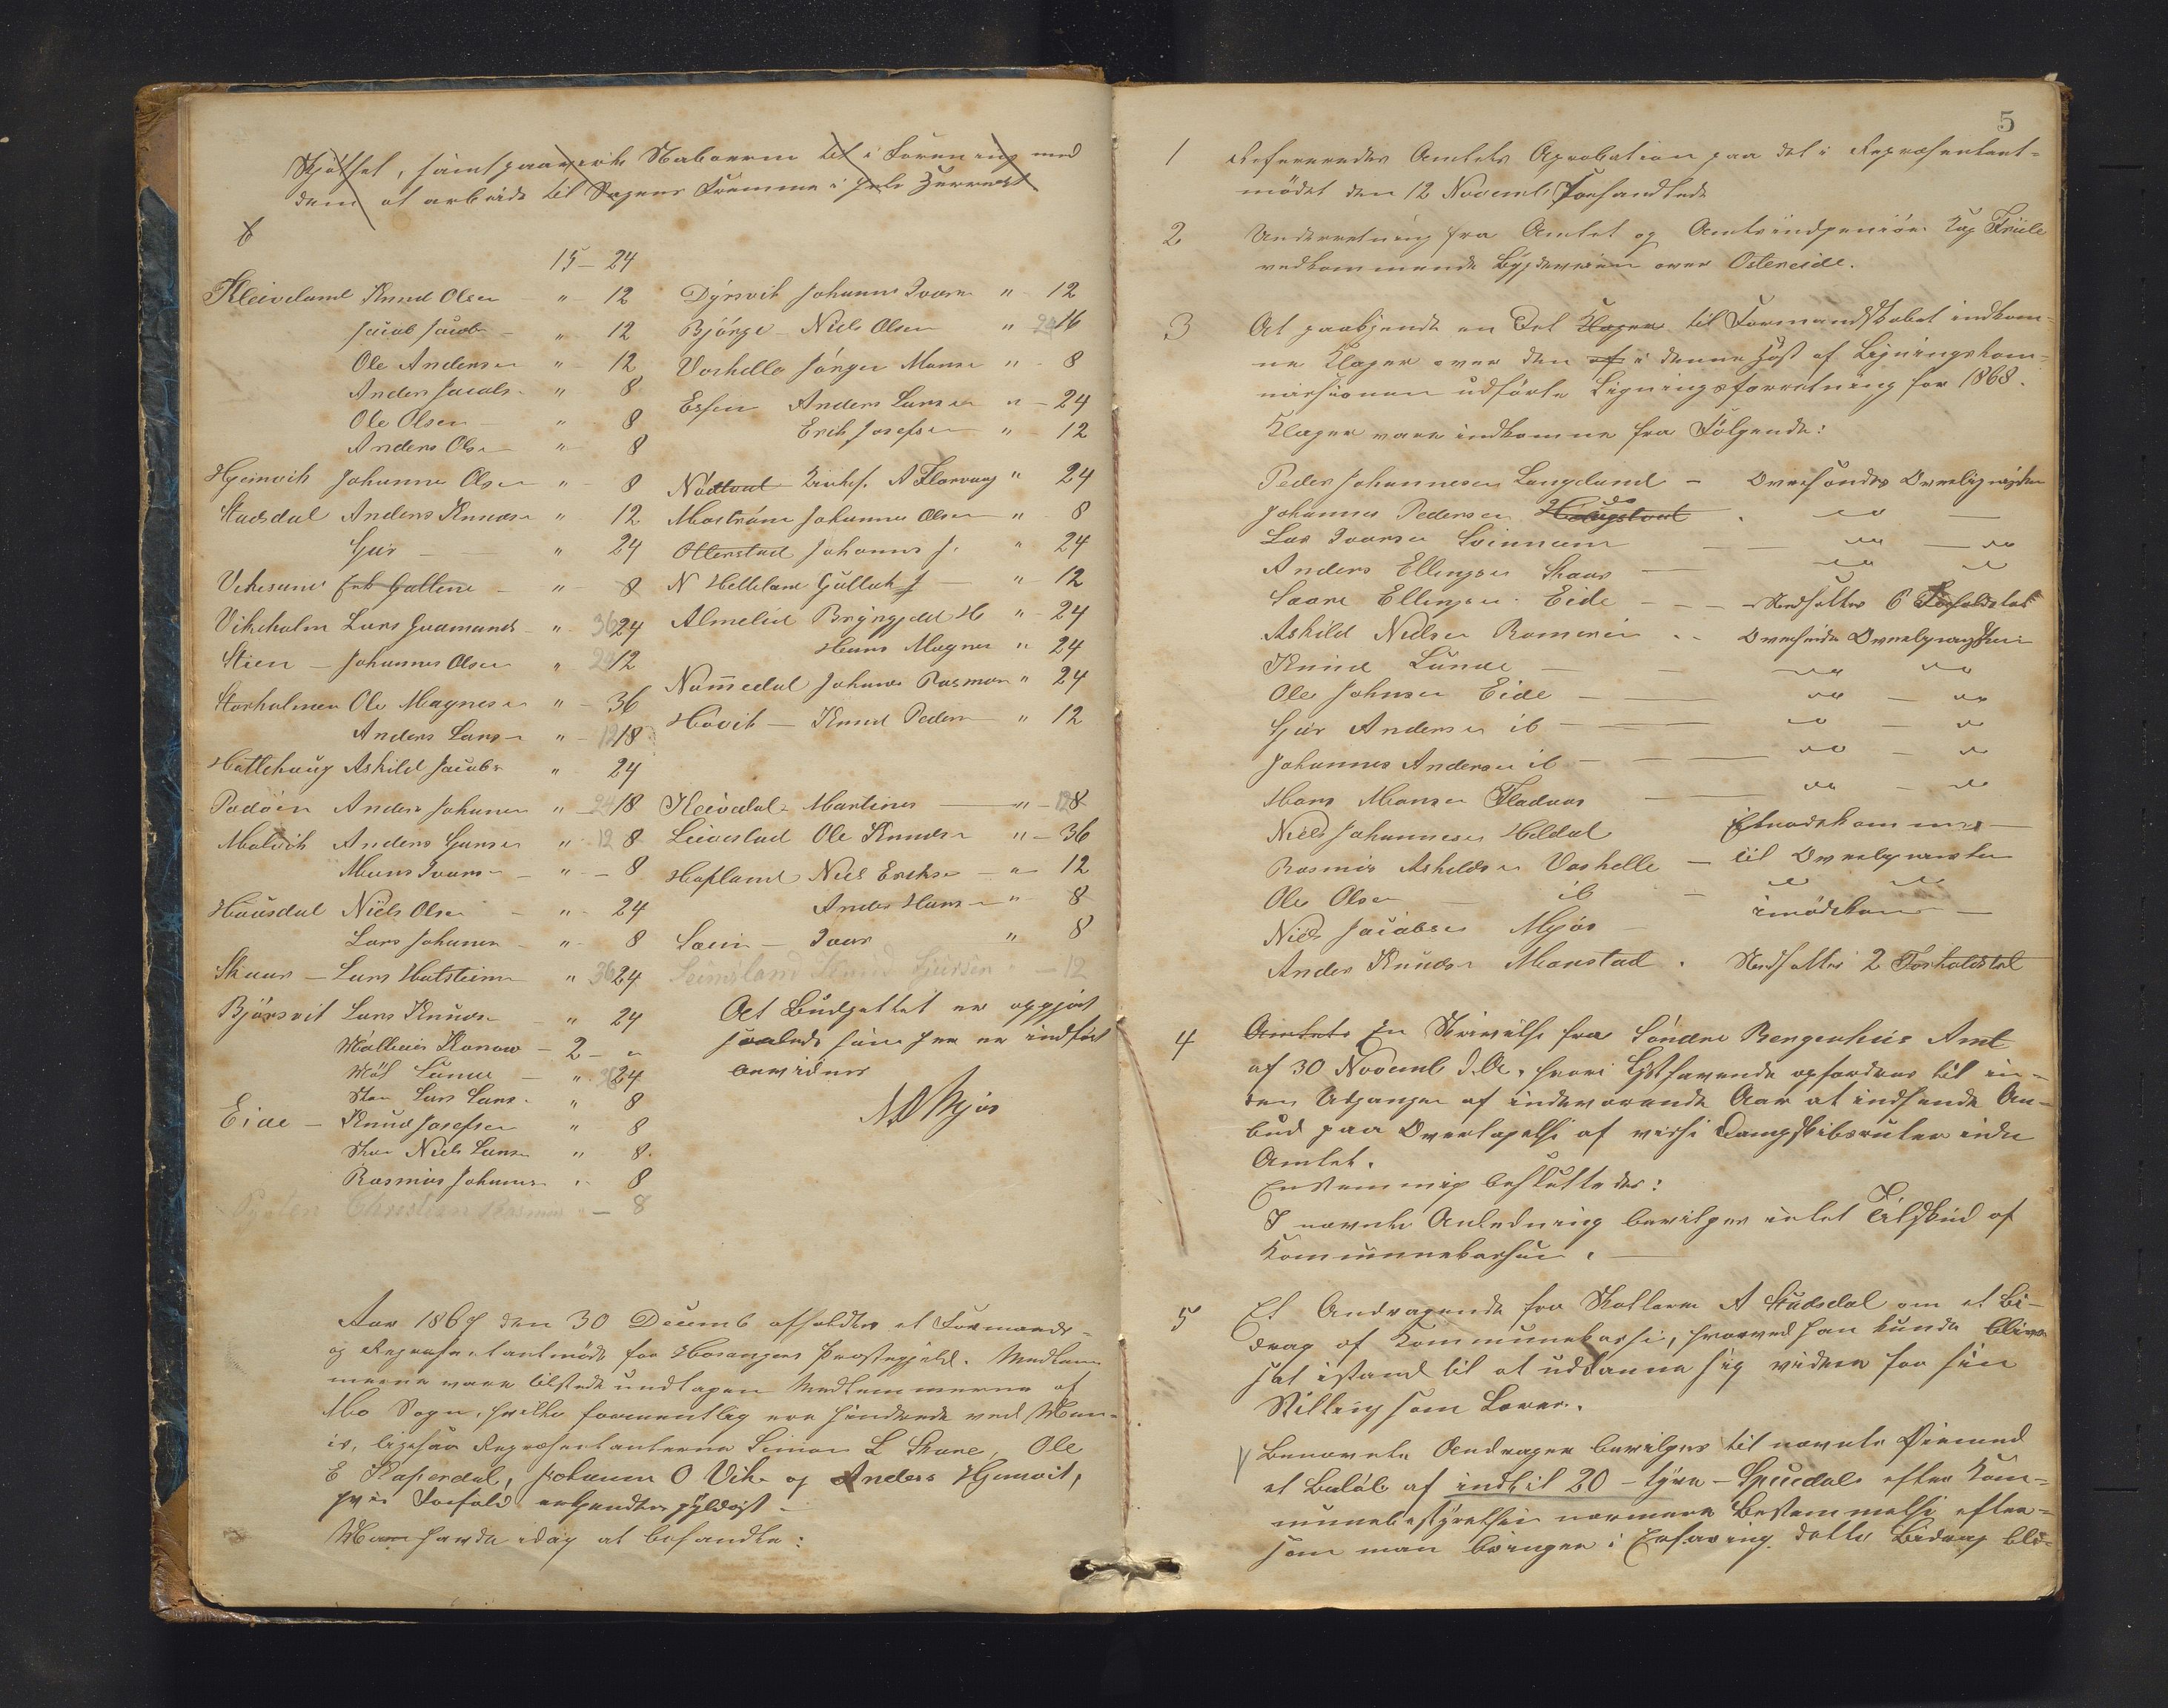 Skjøllet, samt paavirke Naboerne til i Forening med
dem at arbeide til Sagens Fremme i hele
15 – 24
Kleiveland Knud Olsen " 12
Jacob Jacobs " 12
Ole Andersen " 12
Anders Jacobs " 8
Ole Olsen " 8
Anders Olsen " 8
Hjemvik Johannes Olsen " 8
Stadsdal Anders Knudsen " 12
Gjør " 24
Vikesund Erik Gullene " 8
Vikeholm Lars Gudmunds " 36 24
Stien – Johannes Olsen " 24 12
Storholmen Ole Magnesen " 36
Anders Larsen " 12 18
Hatlehaug Askild Jacobs " 24
Padøen Anders Johannes " 24 18
Molvik Anders Hansen " 12 8
Mons Ivars " 8
Housdal Niels Olsen " 24
Lars Johannes " 8
Skaar – Lars Hatsteinen " 36 24
Bjørsvik Lars Knudsen " 24
Mathias Konow – 2 – "
" 36 24
Lars Lars " 8
Eide – Knud Josefsen " 8
Niels Larsen " 8
Rasmus Johannes " 8
Christian Rasmus " – 8
Dyrsvik Johannes Ivarsen " 12
Bjørge – Niels Olsen " 24 16
Vashelle Jørgen Monsen " 8
Esfen Anders Larsen " – 24
Erik Josefsen " 12
Nødtvet Kirkes. A Florvaag " 24
Mostrøm Johannes Olsen " 8
Otterstad Johannes J. " 24
N Helleland Gullak J – " 12
Almelid Bryngjeld H " 24
Hans Magnes " 24
Nommedal Johannes Rasmus " 24
Høvik – Knud Peders " 12
Kleivdal Martinus " – 12 8
Leivestad Ole Knudsen " – 36
Hopland Niels Eriksen " 12
Anders Hansen " 8
Sæim – Ivar " 8
Leimsland Knud Sjursen " – 12
At Budgettet er opgjort
saaledes som her er indført
bevidnes
N O Mjøs
Aar 1867 den 30 Decemb afholdtes et Formands-
og Repræsentantmøde for Hosangers Præstegjeld. Medlem-
merne vare tilstede undtagen Medlemmerne af
Mo Sogn, hvilke formentlig ere hindrede ved Menn-
is, ligesaa Repræsentanterne Simon L Skare, Ole
E Kaperdal, Johannes O Vike og Anders Hjemvik,
hvis Forfald erkjendtes gyldigt –
Man havde idag at behandle:
5
1 Refereredes Amtets Aprobation paa det i Repræsentant-
mødet den 12 Novemb Forhandlede
2 Underretning fra Amtet og Amtsindgeniør Kap Friele
vedkommende Bygdeveien over Ostereide.
3 At paakjende en Del Klager til Formandskabet indkom-
ne Klager over den af i denne Høst af Ligningskom-
missionen udførte Ligningsforretning for 1868.
Klager vare indkomne fra Følgende:
Peder Johannesen Langeland – Oversendes Overligningen
Johannes Pedersen Haugstvet do –
Lars Ivarsen Soinnem – do – do
Anders Ellingsen Skaar – do do
Saare Ellingsen Eide – – – Nedsattes 6 Forholdstal
Askild Nielsen Romerein – – Oversendes Overligningen
Knud Lunde – do do
Ole Johnsen Eide – do – do
Gjør Andersen ib – do – do
Johannes Andersen ib – do – do
Hans Monsen Fladaas – do – do
Niels Johannesen Heldal Efterkommes –
Rasmus Askildsen Vashelle – til Overligningen
Ole Olsen ib – do do
Niels Jacobsen Mjøs – imødekom –
Anders Knudsen Monstad . Nedsattes 2 Forholdstal
4 Amtets En Skrivelse fra Søndre Bergenhus Amt
af 30 Novemb d.A., hvori Lysthavende opfordres til in-
den Udgangen af indeværende Aar at indsende An-
bud paa Overtagelse af visse Dampskibsruter inden
Amtet.
Enstemmig besluttedes:
I nævnte Anledning bevilges intet Tilskud af
Kommunekassen. –
5 Et Andragende fra Skolelærer A Stadsdal om et Bi-
drag af Kommunekassen, hvorved han kunde blive
sat istand til at uddanne sig videre for sin
Stilling som Lærer.
Benævnte Andrager bevilges til nævnte Øiemed
et Beløb af indtil 20 – tyve – Speciedal. efter Kom-
munebestyrelsens nærmere Bestemmelse efter-
som man bringer i Erfaring dette Bidrag bli-